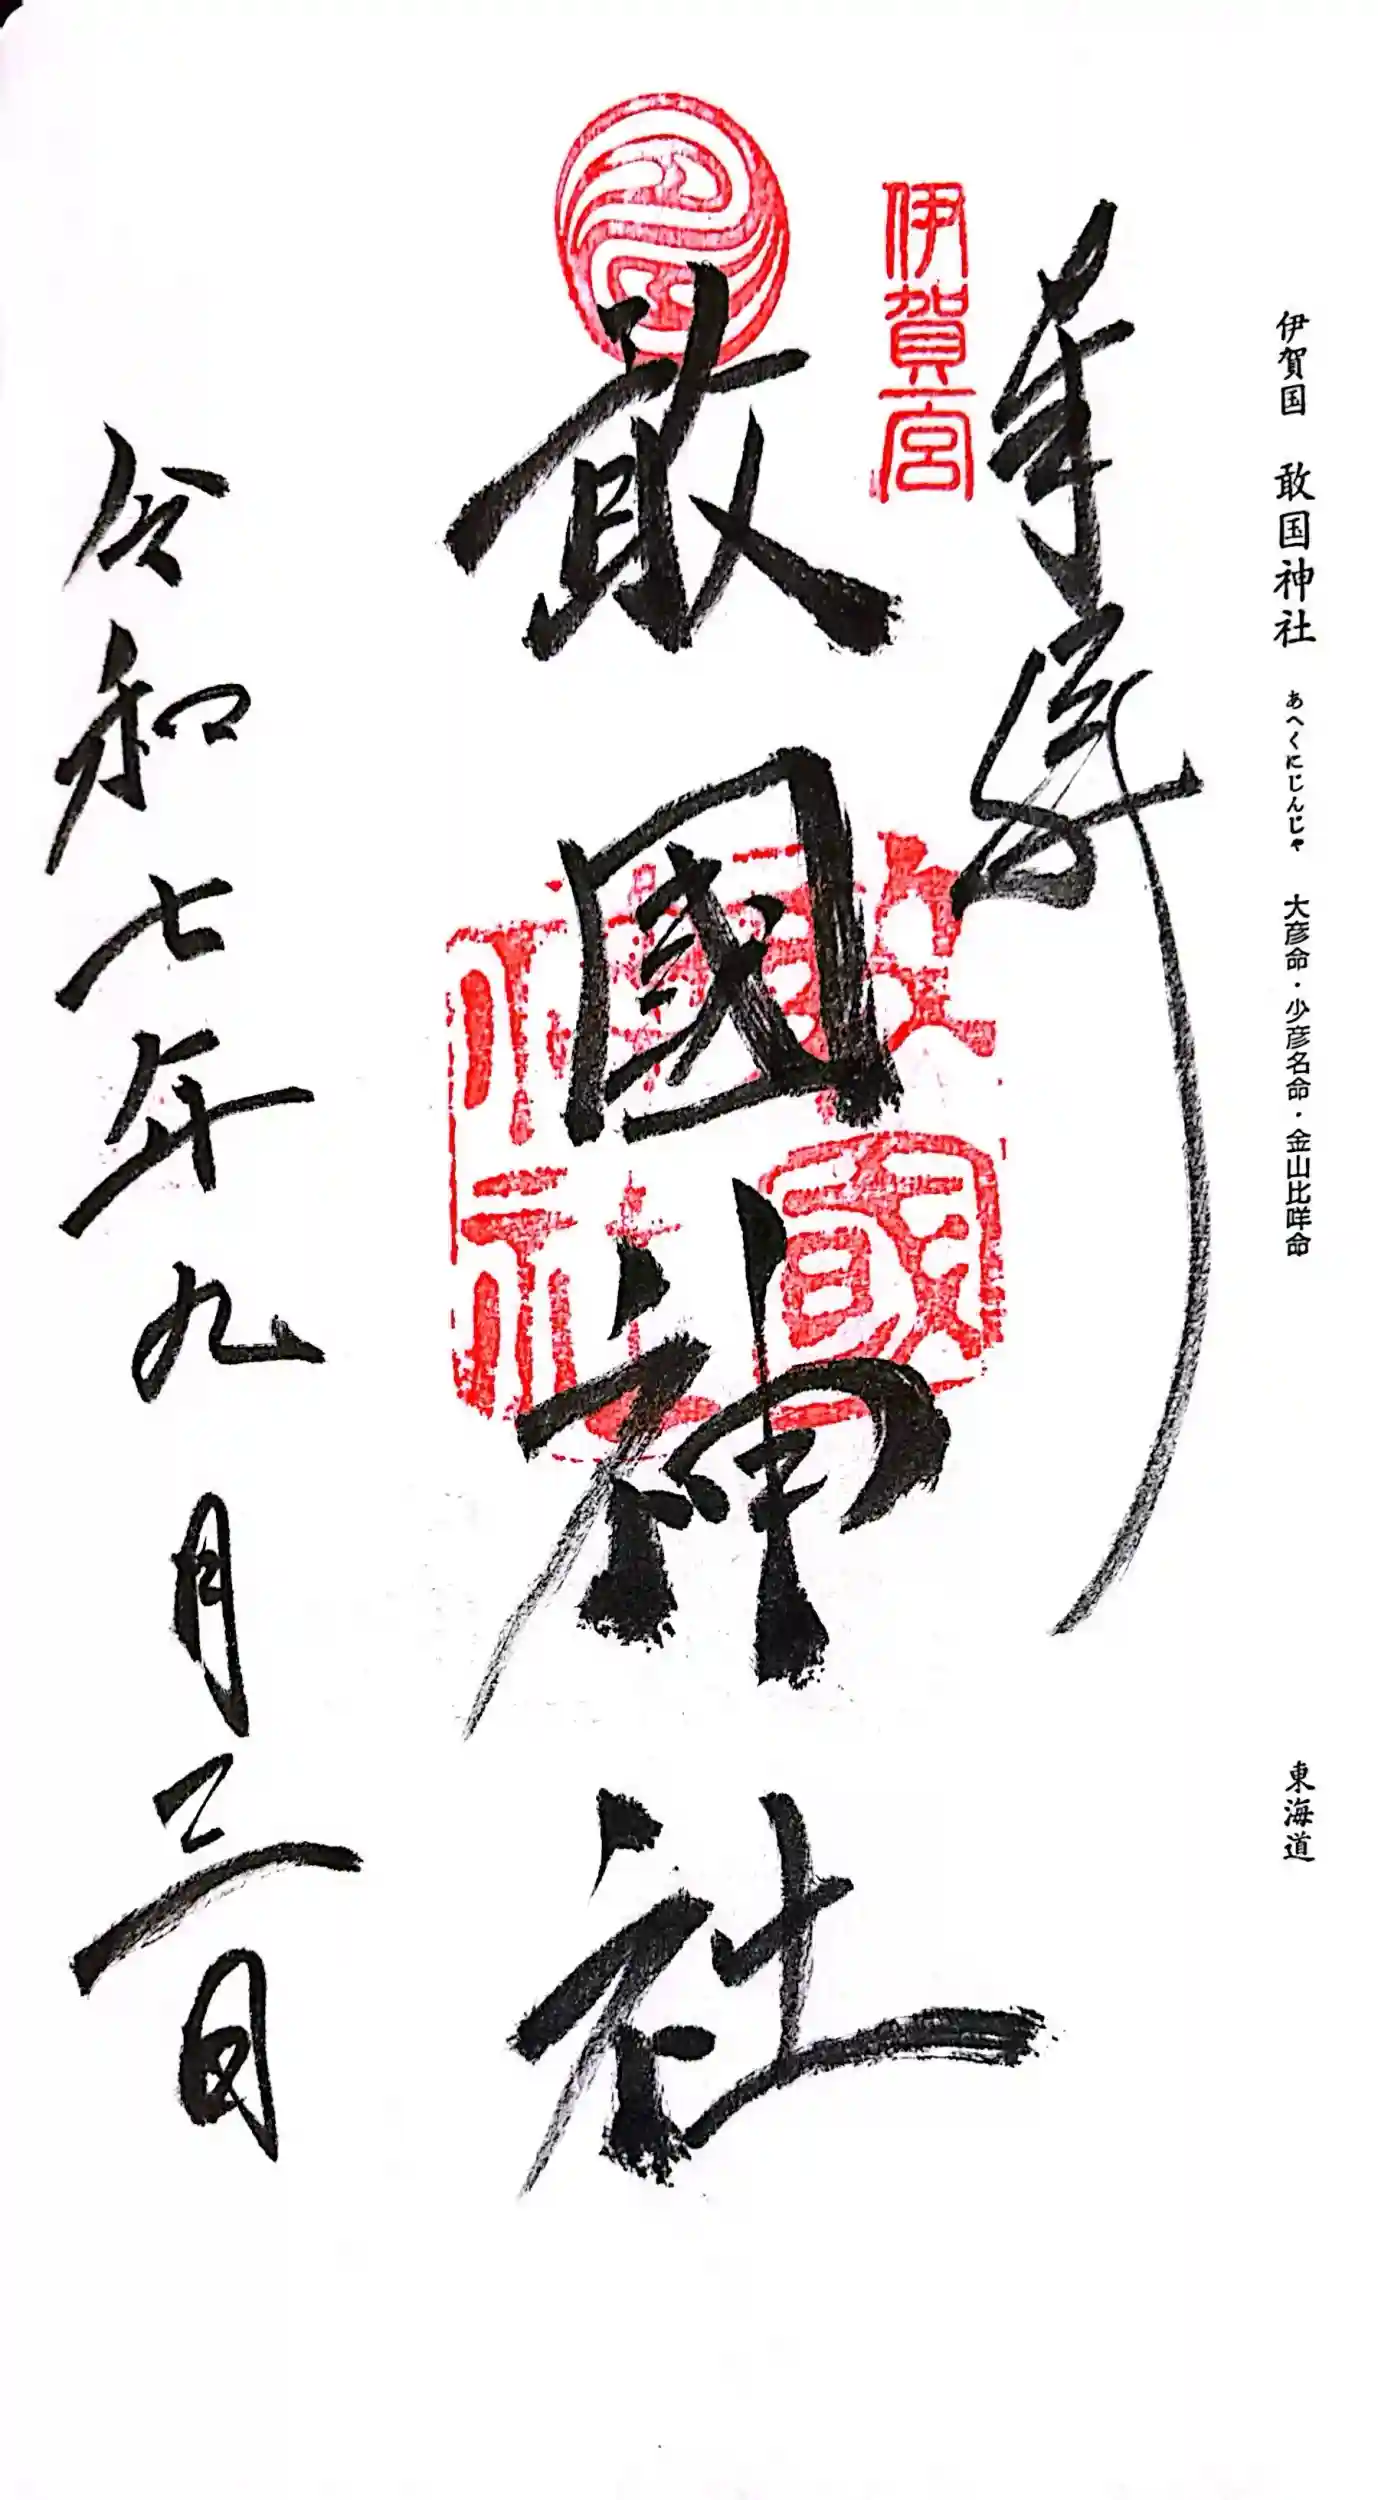 伊賀国 敢国神社 あへくにじんじゃ 大彦命・少彦名命・金山比咩命 東海道
奉拝
伊賀一宮
敢國神社
敢國神社
令和七年九月三日